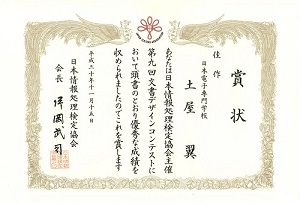 賞状
佳作
日本電子専門学校
土屋 翼
あなたは日本情報処理検定協会主催
第九回文書デザインコンテストに
おいて頭書のとおり優秀な成績を
収められましたのでこれを賞します
平成二十年十一月十五日
日本情報処理検定協会
会長